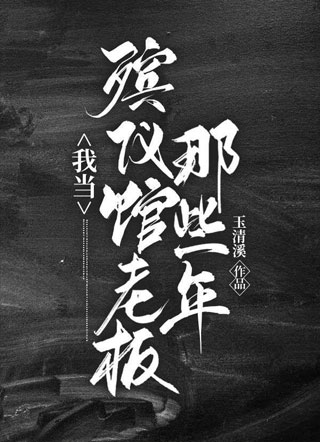 <我当>
殡仪馆老板
那些年
玉清溪
作品